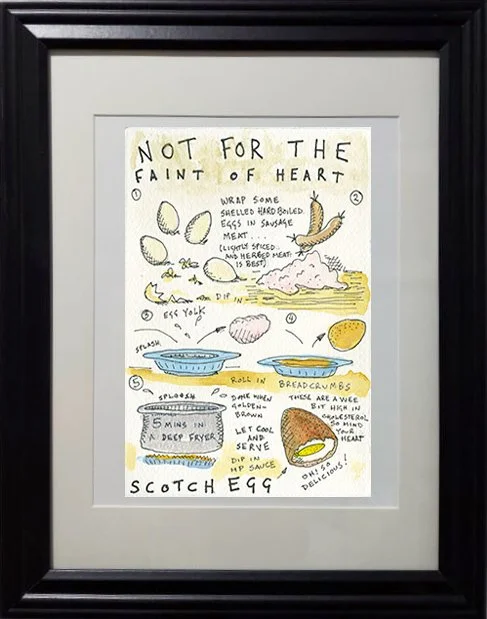 NOT FOR THE
FAINT OF HEART
1
2
WRAP SOME
SHELLED HARD BOILED
EGGS IN SAUSAGE
MEAT...
(LIGHTLY SPICED
AND HERBED MEAT
IS BEST)
DIP IN
3
EGG YOLK
4
SPLASH
ROLL IN BREADCRUMBS
5
SPLOOSH
5 MINS IN
A DEEP FRYER
DONE WHEN
GOLDEN-
BROWN
LET COOL
AND
SERVE
DIP IN
HP SAUCE
THESE ARE A WEE
BIT HIGH IN
CHOLESTEROL
SO MIND
YOUR
HEART
OH! SO
DELICIOUS!
SCOTCH EGG